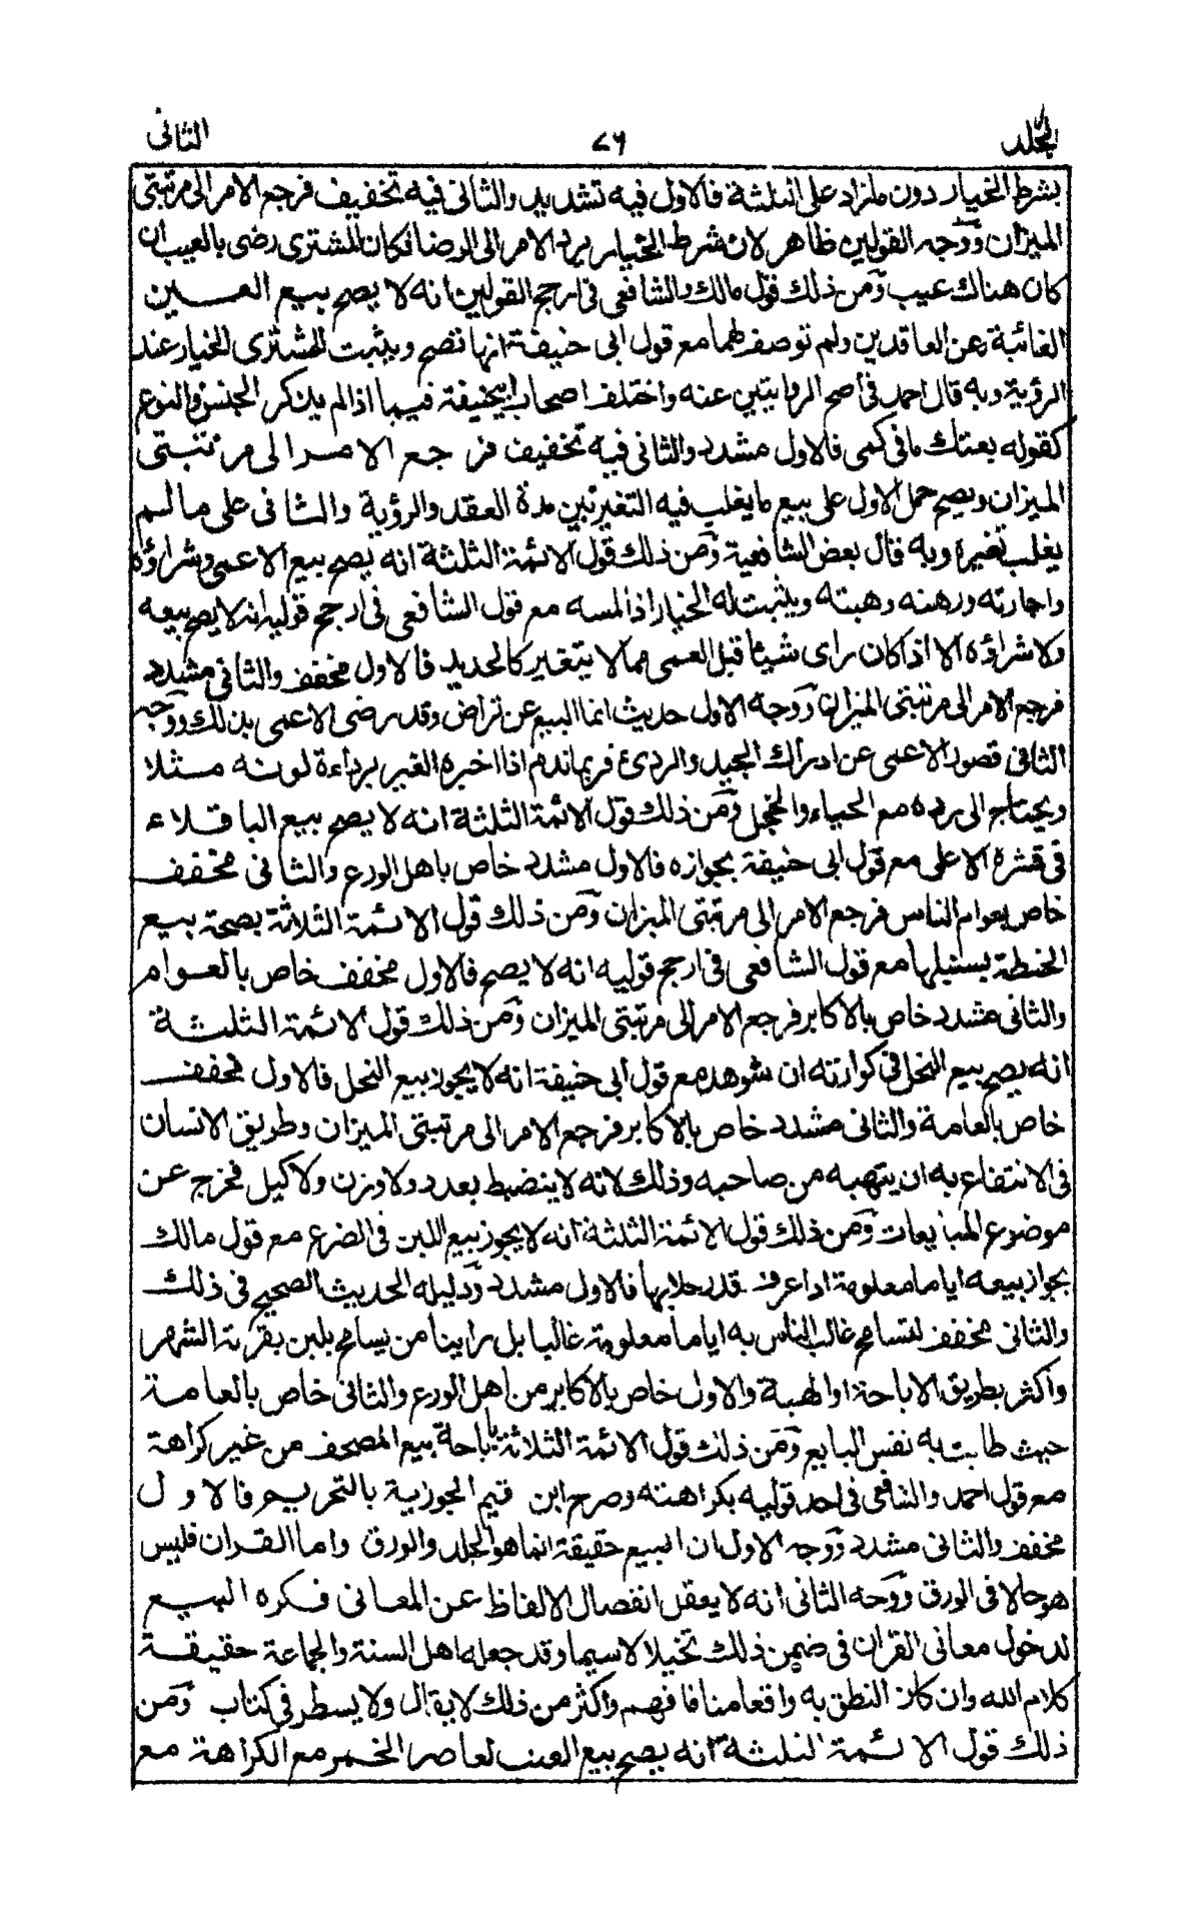 المجلد
٧٦
الثانی
بشرط الخیار دون مازاد علی الثلثة فالاول فیه تشدید والثانی فیه تخفیف فرجع الامر الی مرتبتی
المیزان ووجه القولین ظاهر لان شرط الخیار یرد الامر الی الرضا فکان المشتری رضی بالعیب ان
کان هناك عیب ومن ذلك قول مالك والشافعی فی ارجح القولین انه لا یصح بیع العین
الغائبة عن العاقدین ولم توصف لهما مع قول ابی حنیفة انها تصح ویثبت للمشتری الخیار عند
الرؤیة وبه قال احمد فی اصح الروایتین عنه واختلف اصحاب ابیحنیفة فیما اذا لم یذکر الجنس والنوع
کقوله بعتك ما فی کمی فالاول مشدد والثانی فیه تخفیف فرجع الامر الی مرتبتی
المیزان ویصح حمل الاول علی بیع ما یغلب فیه التغیر بین مدة العقد والرؤیة والثانی علی ما لم
یغلب تغیره وبه قال بعض الشافعیة ومن ذلك قول الائمة الثلثة انه یصح بیع الاعمی وشراؤه
واجارته ورهنه وهبته ویثبت له الخیار اذا لمسه مع قول الشافعی فی ارجح قولیه انه لا یصح بیعه
ولا شراؤه الا اذا کان رای شیئا قبل العمی مما لا یتغیر کالحدید فالاول مخفف والثانی مشدد
فرجع الامر الی مرتبتی المیزان ووجه الاول حدیث انما البیع عن تراض وقد رضی الاعمی بذلك ووجه
الثانی قصور الاعمی عن ادراك الجید والردئ فربما ندم اذا اخبره الغیر برداءة لونه مثلا
ویحتاج الی رده مع الحیاء والخجل ومن ذلك قول الائمة الثلثة انه لا یصح بیع الباقلاء
فی قشره الاعلی مع قول ابی حنیفة بجوازه فالاول مشدد خاص باهل الورع والثانی مخفف
خاص بعوام الناس فرجع الامر الی مرتبتی المیزان ومن ذلك قول الائمة الثلاثة بصحة بیع
الحنطة بسنبلها مع قول الشافعی فی ارجح قولیه انه لا یصح فالاول مخفف خاص بالعوام
والثانی مشدد خاص بالاکابر فرجع الامر الی مرتبتی المیزان ومن ذلك قول الائمة الثلثة
انه یصح بیع النحل فی کوارته ان شوهد مع قول ابی حنیفة انه لا یجوز بیع النحل فالاول مخفف
خاص بالعامة والثانی مشدد خاص بالاکابر فرجع الامر الی مرتبتی المیزان وطریق الانسان
فی الانتفاع به ان یتهبه من صاحبه وذلك لانه لا ینضبط بعدد ولا وزن ولا کیل فخرج عن
موضوع المبایعات ومن ذلك قول الائمة الثلثة انه لا یجوز بیع اللبن فی الضرع مع قول مالك
بجواز بیعه ایاما معلومة اذا عرف قدر حلابها فالاول مشدد ودلیله الحدیث الصحیح فی ذلك
والثانی مخفف لتسامح غالب الناس به ایاما معلومة غالبا بل راینا من یسامح بلبن بقرته الشهر
واکثر بطریق الاباحة او الهبة والاول خاص بالاکابر من اهل الورع والثانی خاص بالعامة
حیث طابت به نفس البایع ومن ذلك قول الائمة الثلاثة باباحة بیع المصحف من غیر کراهة
مع قول احمد والشافعی فی احد قولیه بکراهته وصرح ابن قیم الجوزیة بالتحریم فالاول
مخفف والثانی مشدد ووجه الاول ان البیع حقیقة انما هو الجلد والورق واما القران فلیس
هو حالا فی الورق ووجه الثانی انه لا یعقل انفصال الالفاظ عن المعانی فکره البیع
لدخول معانی القران فی ضمن ذلك تخیلا لاسیما وقد جعله اهل السنة والجماعة حقیقة
کلام الله وان کان النطق به واقعا منا فافهم واکثر من ذلك لا یقال ولا یسطر فی کتاب ومن
ذلك قول الائمة الثلثة انه یصح بیع العنب لعاصر الخمر مع الکراهة مع